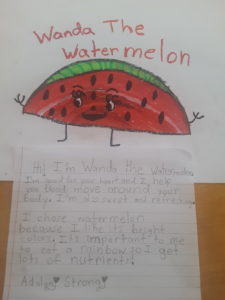 Wanda The
Watermelon
Hi I'm Wanda the Watermelon.
I'm good for your heart and I help
your blood move around your
body. I'm also sweet and refreshing.
I chose watermelon
because I like its bright
colors. It's important to me
to eat a rainbow so I get
lots of nutrients.
Strong